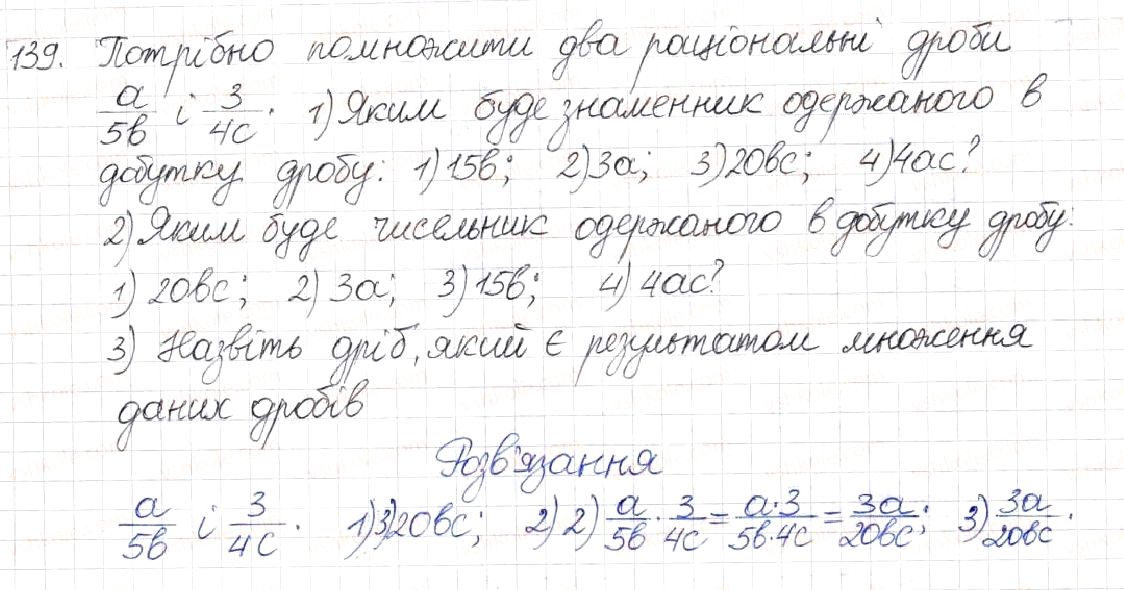 139. Потрібно помножити два раціональні дроби
a/5b і 3/4c. 1) Яким буде знаменник одержаного в
добутку дробу: 1) 15b; 2) 3a; 3) 20bc; 4) 4ac?
2) Яким буде чисельник одержаного в добутку дробу:
1) 20bc; 2) 3a; 3) 15b; 4) 4ac?
3) Назвіть дріб, який є результатом множення
даних дробів
Розв'язання
a/5b і 3/4c. 1) 3) 20bc; 2) 2) a/5b · 3/4c = a·3/5b·4c = 3a/20bc; 3) 3a/20bc.